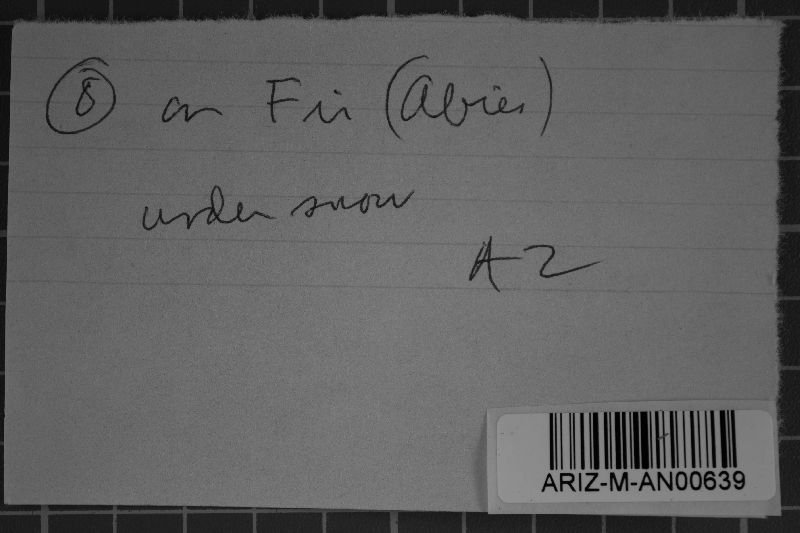 8 on Fir (Abies)
under snow
AZ
ARIZ-M-AN00639